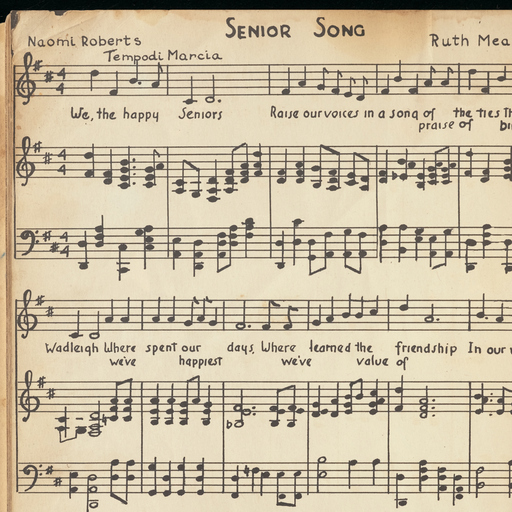 SENIOR SONG
Naomi Roberts Ruth Mea
Tempo di Marcia
We, the happy Seniors Raise our voices in a song of the ties Th
praise of bi
Wadleigh Where spent our days, Where learned the friendship In our
we've happiest we've value of